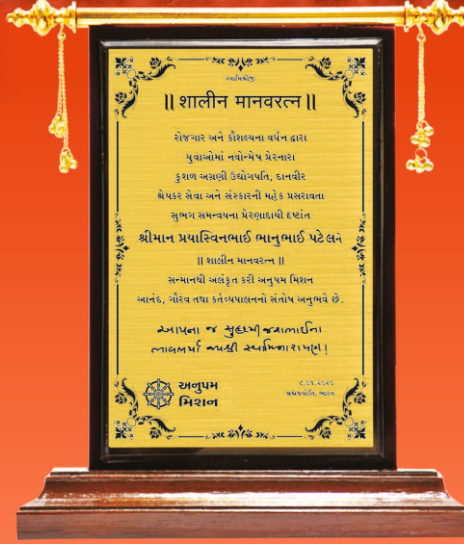 સ્વામિશ્રીજી
|| શાલીન માનવરત્ન ||
રોજગાર અને કૌશલ્યના વર્ધન દ્વારા
યુવાઓમાં નવોન્મેષ પ્રેરનારા
કુશળ અગ્રણી ઉદ્યોગપતિ, દાનવીર
શ્રેયકર સેવા અને સંસ્કારની મહેક પ્રસરાવતા
સુભગ સમન્વયના પ્રેરણાદાયી દૃષ્ટાંત
શ્રીમાન પ્રયાસ્વિનભાઈ ભાનુભાઈ પટેલને
|| શાલીન માનવરત્ન ||
સન્માનથી અલંકૃત કરી અનુપમ મિશન
આનંદ, ગૌરવ તથા કર્તવ્યપાલનનો સંતોષ અનુભવે છે.
આપના જ
જય શ્રી સ્વામિનારાયણ!
અનુપમ
મિશન
બ્રહ્મજ્યોતિ, ભારત